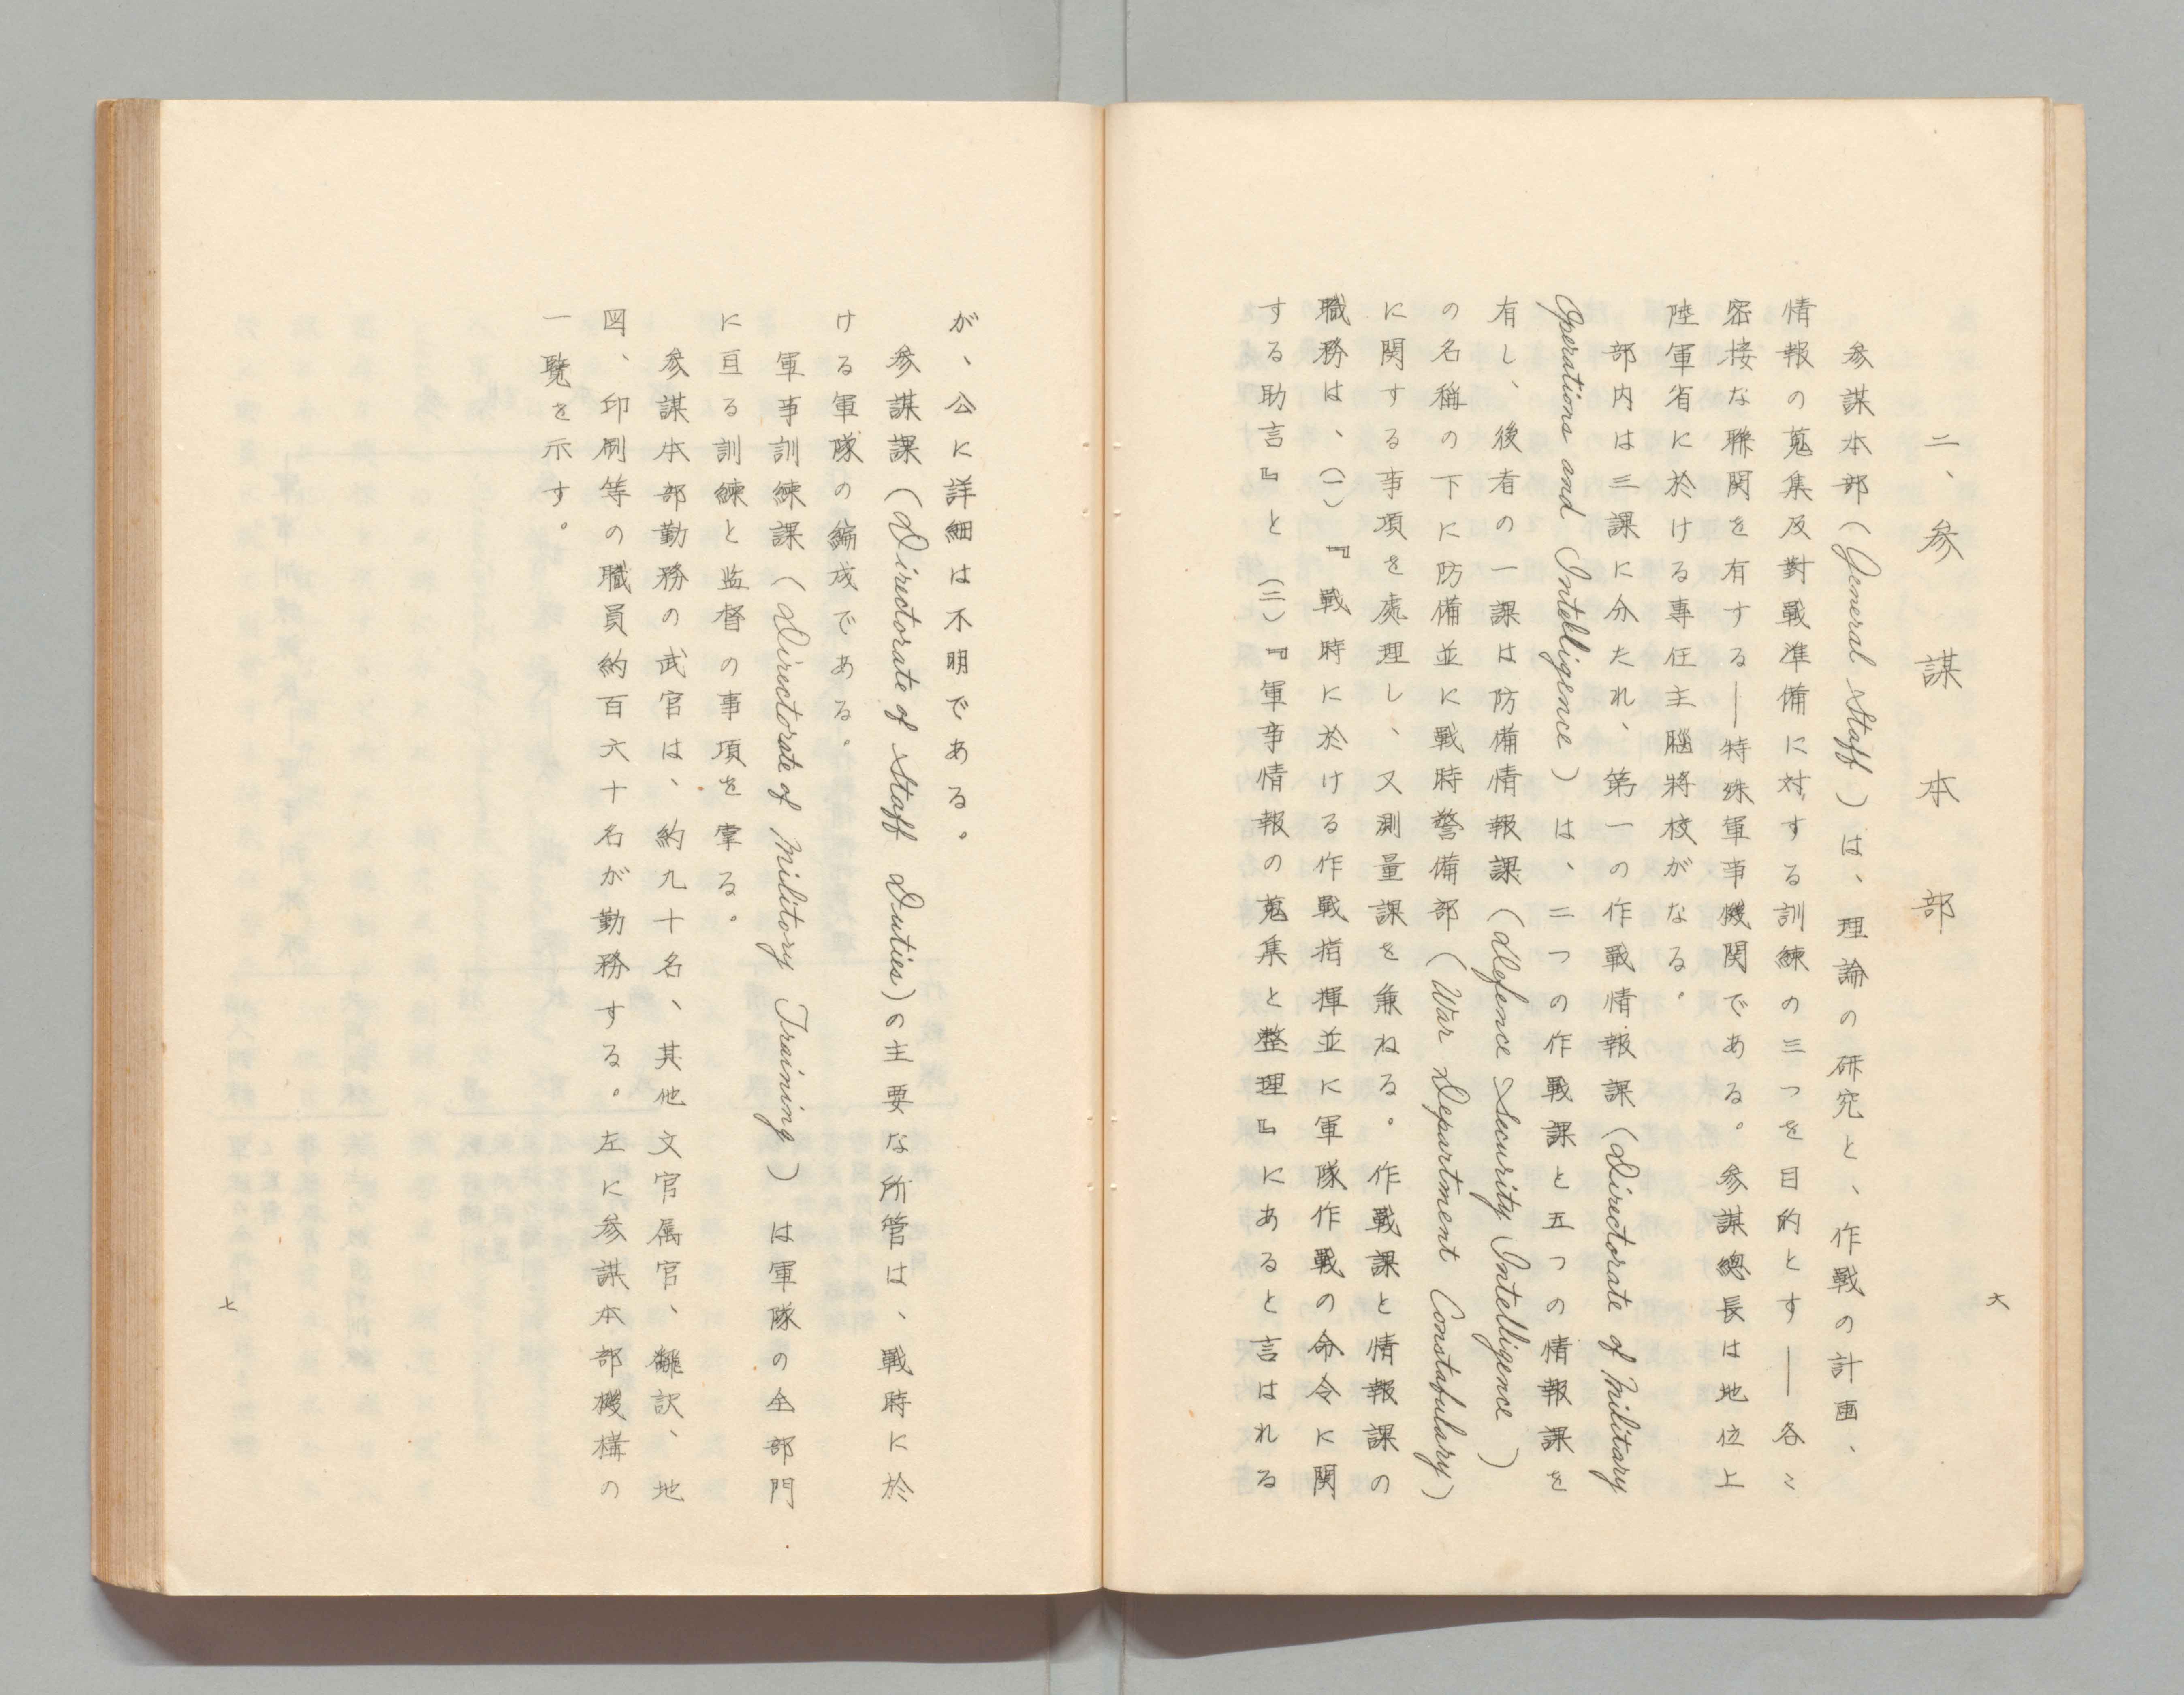 六
二、参謀本部
参謀本部（General Staff）は、理論の研究と、作戰の計画、
情報の蒐集及對戰準備に対する訓練の三つを目的とす――各〻
密接な聯関を有する――特殊軍事機関である。参謀總長は地位上
陸軍省に於ける專任主腦將校がなる。
部内は三課に分たれ、第一の作戰情報課（Directorate of Military
Operations and Intelligence）は、二つの作戰課と五つの情報課を
有し、後者の一課は防備情報課（Defence Security Intelligence）
の名稱の下に防備並に戰時警備部（War Department Constabulary）
に関する事項を處理し、又測量課を兼ねる。作戰課と情報課の
職務は、（一）『戰時に於ける作戰指揮並に軍隊作戰の命令に関
する助言』と（二）『軍事情報の蒐集と整理』にあると言はれる
が、公に詳細は不明である。
参謀課（Directorate of Staff Duties）の主要な所管は、戰時に於
ける軍隊の編成である。
軍事訓練課（Directorate of Military Training）は軍隊の全部門
に亘る訓練と監督の事項を掌る。
参謀本部勤務の武官は、約九十名、其他文官属官、飜訳、地
図、印刷等の職員約百六十名が勤務する。左に参謀本部機構の
一覽を示す。
七